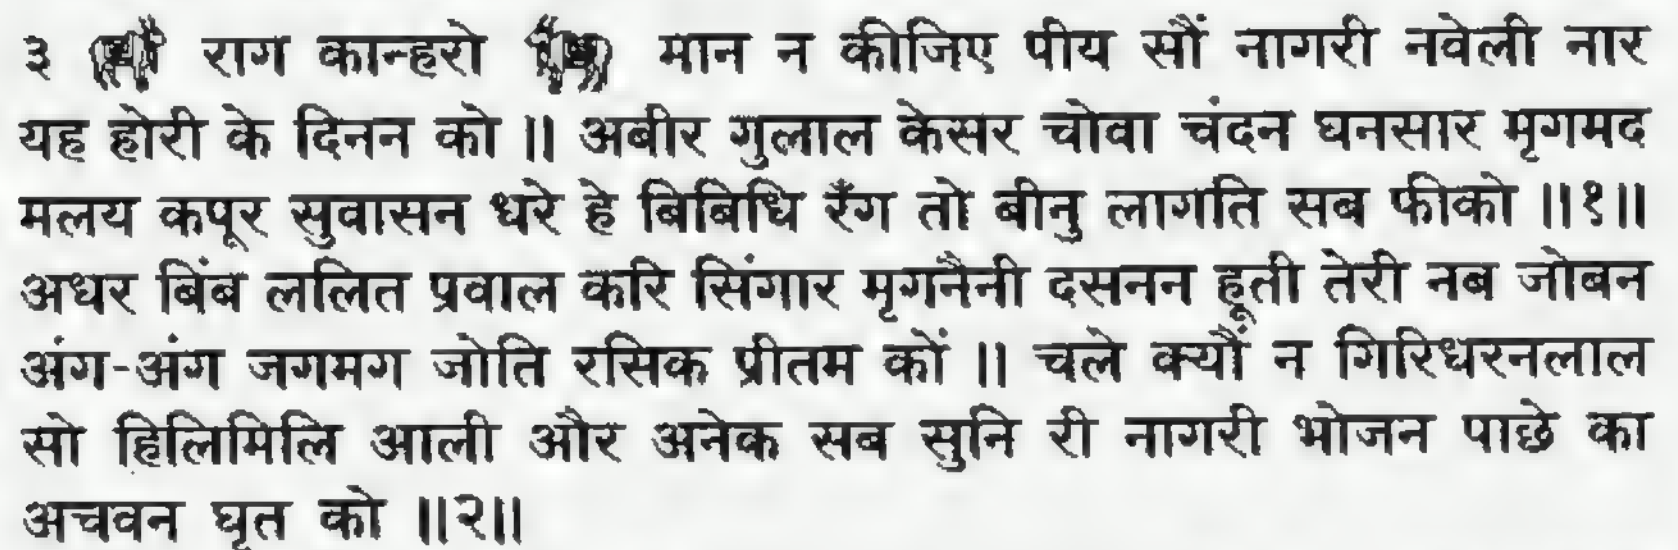 ३ राग कान्हरो मान न कीजिए पीय सौं नागरी नवेली नार
यह होरी के दिनन को ॥ अबीर गुलाल केसर चोवा चंदन घनसार मृगमद
मलय कपूर सुवासन धरे हे बिबिधि रँग तो बीनु लागति सब फीको ॥१॥
अधर बिंब ललित प्रवाल करि सिंगार मृगनैनी दसनन हूती तेरी नब जोबन
अंग-अंग जगमग जोति रसिक प्रीतम कों ॥ चले क्यौं न गिरिधरनलाल
सो हिलिमिलि आली और अनेक सब सुनि री नागरी भोजन पाछे का
अचवन घृत को ॥२॥